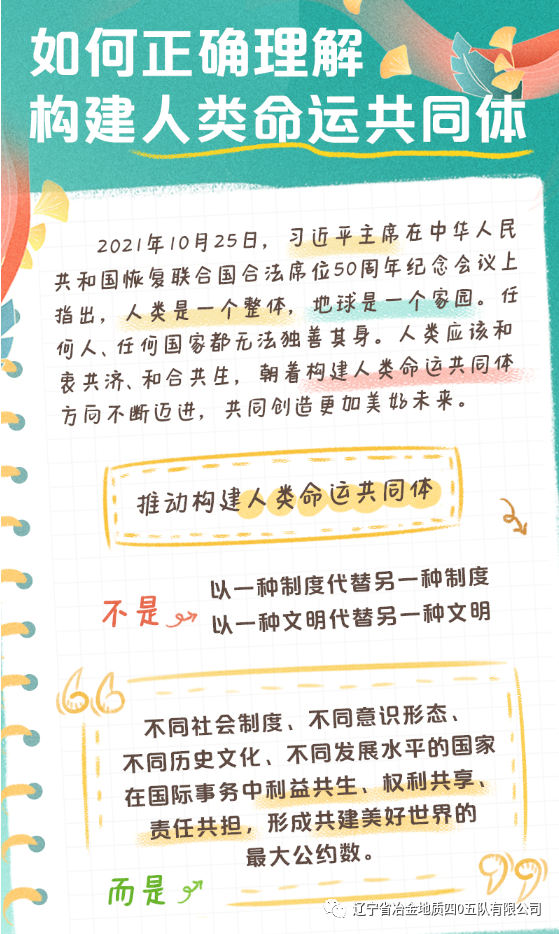 如何正确理解
构建人类命运共同体
2021年10月25日，习近平主席在中华人民
共和国恢复联合国合法席位50周年纪念会议上
指出，人类是一个整体，地球是一个家园。任
何人、任何国家都无法独善其身。人类应该和
衷共济、和合共生，朝着构建人类命运共同体
方向不断迈进，共同创造更加美好未来。
推动构建人类命运共同体
不是
以一种制度代替另一种制度
以一种文明代替另一种文明
不同社会制度、不同意识形态、
不同历史文化、不同发展水平的国家
在国际事务中利益共生、权利共享、
责任共担，形成共建美好世界的
最大公约数。
而是
辽宁省冶金地质四0五队有限公司